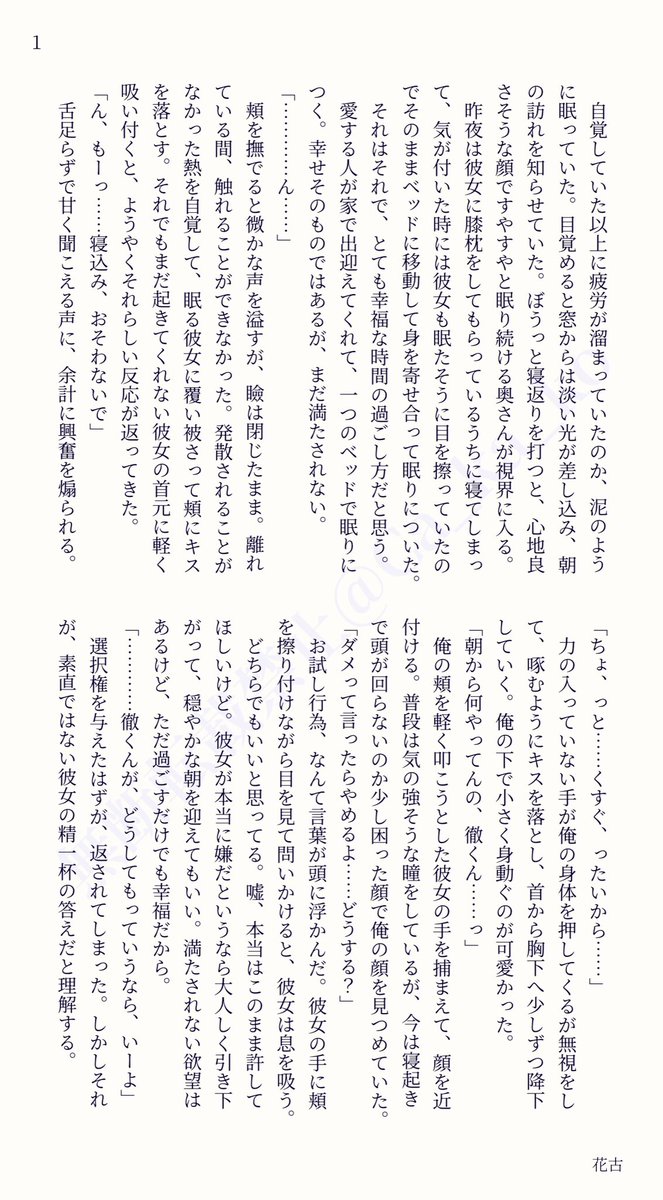 1
自覚していた以上に疲労が溜まっていたのか、泥のよう
に眠っていた。目覚めると窓からは淡い光が差し込み、朝
の訪れを知らせていた。ぼうっと寝返りを打つと、心地良
さそうな顔ですやすやと眠り続ける奥さんが視界に入る。
昨夜は彼女に膝枕をしてもらっているうちに寝てしまっ
て、気が付いた時には彼女も眠たそうに目を擦っていたの
でそのままベッドに移動して身を寄せ合って眠りについた。
それはそれで、とても幸福な時間の過ごし方だと思う。
愛する人が家で出迎えてくれて、一つのベッドで眠りに
つく。幸せそのものではあるが、まだ満たされない。
「…………ん……」
頬を撫でると微かな声を溢すが、瞼は閉じたまま。離れ
ている間、触れることができなかった。発散されることが
なかった熱を自覚して、眠る彼女に覆い被さって頬にキス
を落とす。それでもまだ起きてくれない彼女の首元に軽く
吸い付くと、ようやくそれらしい反応が返ってきた。
「ん、もーっ……寝込み、おそわないで」
舌足らずで甘く聞こえる声に、余計に興奮を煽られる。
「ちょ、っと……くすぐ、ったいから……」
力の入っていない手が俺の身体を押してくるが無視をし
て、啄むようにキスを落とし、首から胸下へ少しずつ降下
していく。俺の下で小さく身動ぐのが可愛かった。
「朝から何やってんの、徹くん……っ」
俺の頬を軽く叩こうとした彼女の手を捕まえて、顔を近
付ける。普段は気の強そうな瞳をしているが、今は寝起き
で頭が回らないのか少し困った顔で俺の顔を見つめていた。
「ダメって言ったらやめるよ……どうする？」
お試し行為、なんて言葉が頭に浮かんだ。彼女の手に頬
を擦り付けながら目を見て問いかけると、彼女は息を吸う。
どちらでもいいと思ってる。嘘、本当はこのまま許して
ほしいけど。彼女が本当に嫌だというなら大人しく引き下
がって、穏やかな朝を迎えてもいい。満たされない欲望は
あるけど、ただ過ごすだけでも幸福だから。
「…………徹くんが、どうしてもっていうなら、いーよ」
選択権を与えたはずが、返されてしまった。しかしそれ
が、素直ではない彼女の精一杯の答えだと理解する。
花古